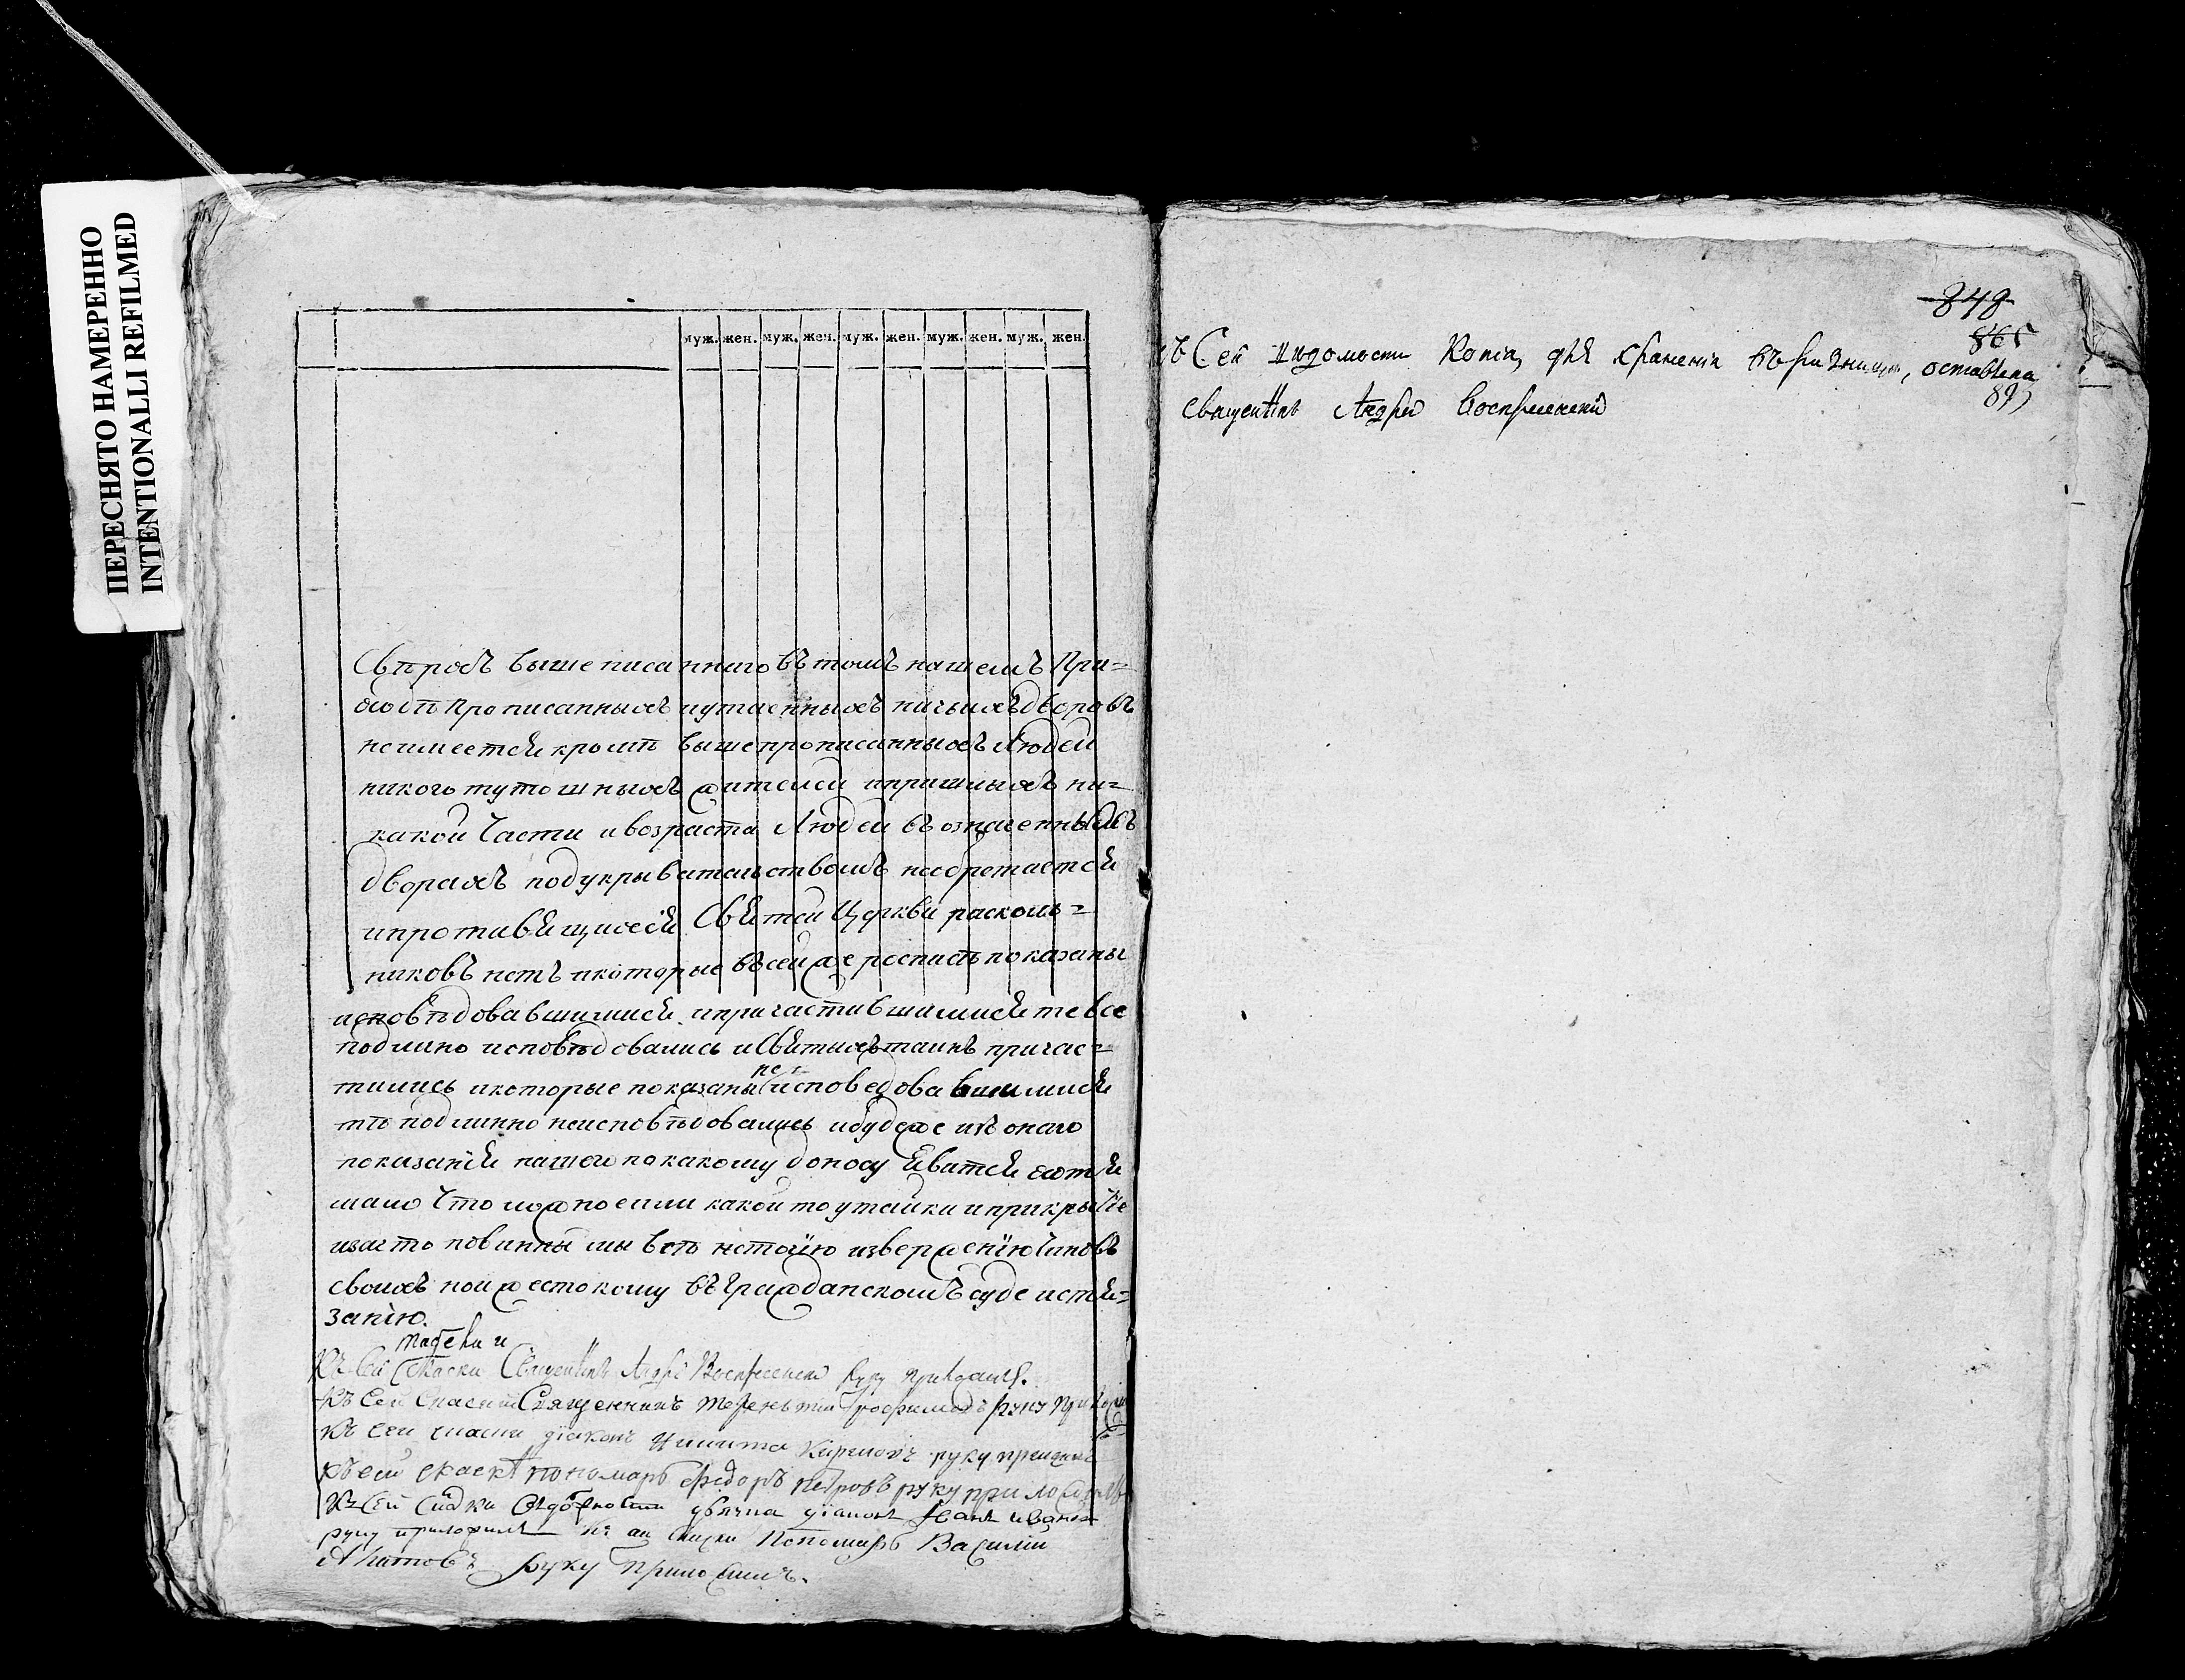 ПЕРЕСНЯТО НАМЕРЕННО
INTENTIONALLI REFILMED
муж. жен. муж. жен. муж. жен. муж. жен. муж. жен.
выше писаннаго въ томъ нашемъ При=
ходѣ прописанныхъ иутаенныхъ ничьихъ дворовъ
неимеется кромѣ вышепрописанныхъ Людей
никого тутошныхъ жителей ипришлыхъ ни=
какой Части ивозраста Людей въ означенныхъ
дворахъ подукрывательствомъ необретается
ипротивящихся Святей Церкви расколь=
никовъ нетъ икоторые въсей же росписѣ показаны
исповѣдовавшимися ипричастившимися те все
подлино исповѣдовались иСвятыхъ таинъ причас=
тились икоторые показаны не исповедовавшимися
тѣ подлинно неисповѣдовались ибудеже изъ онаго
показанїя нашего покакому доносу явится хотя
мало Что ложно или какой то утайки иприкрытїе
изато повинны мы всѣ изверженїю Чиновъ
своихъ ноижестокому въ Гражданскомъ суде истя=
занїю.
табели и
Къ сей Скаски Священникъ Андрей Воскресенский руку приложилъ.
Къ Сей Скаски Священникъ Терентий Трофимовъ руку приложи
лъ
Къ сей скаски дїаконъ Никита Кириловъ руку приложилъ
Къ сей скаскѣ пономарь Федоръ Петровъ руку приложилъ
Къ сей Скаски дїаконъ Иванъ Иванов
руку приложилъ Къ сей Скаски Пономарь Василий
руку приложилъ.
848
865
къ Сей Ведомости Копїа, для хранения въ ризнице, оставлена
89
Священникъ Андрей Воскресенский